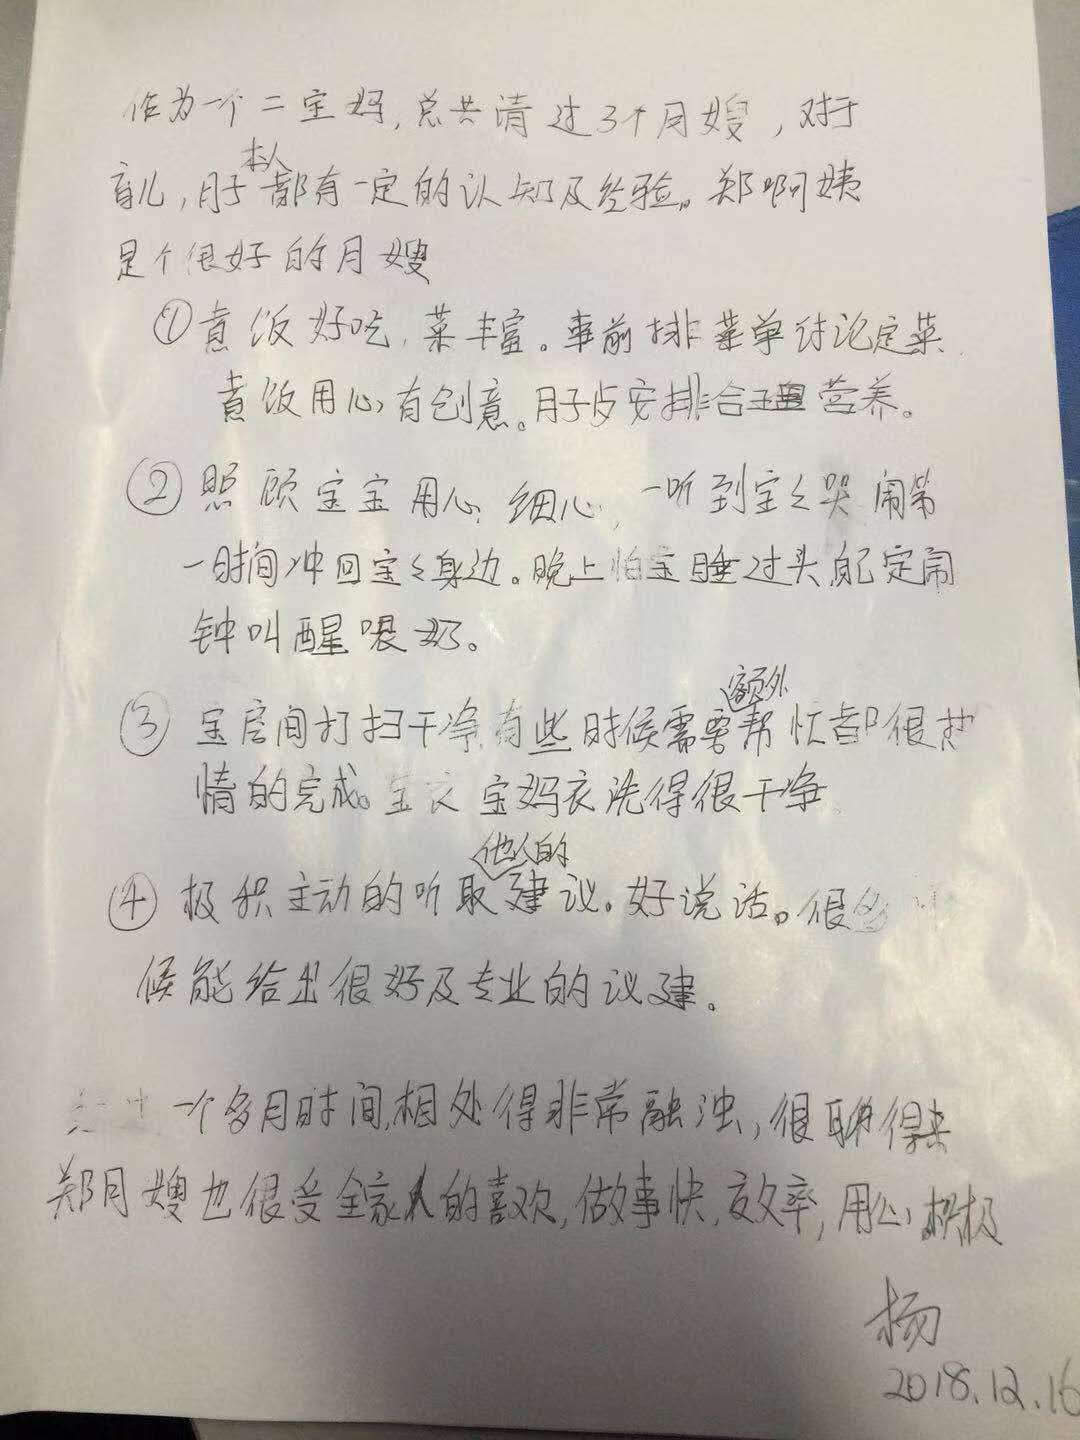 作为一个二宝妈,总共请过3个月嫂,对于
育儿,月子本人都有一定的认知及经验。郑啊姨
是个很好的月嫂
①煮饭好吃,菜丰富。事前排菜单讨论定菜.
煮饭用心,有创意。月子歺安排合理营养。
②照顾宝宝用心,细心,一听到宝々哭闹第
一时间冲回宝々身边。晚上怕宝睡过头自己定闹
钟叫醒喂奶。
③宝房间打扫干净,有些时候需要额外帮忙都很热
情的完成。宝衣宝妈衣洗得很干净.
④极积主动的听取他人的建议。好说话。很多时
候能给出很好及专业的议建。
一个多月时间,相处得非常融浊,很聊得来
郑月嫂也很受全家人的喜欢,做事快,有效率,用心.积极
杨
2018.12.16